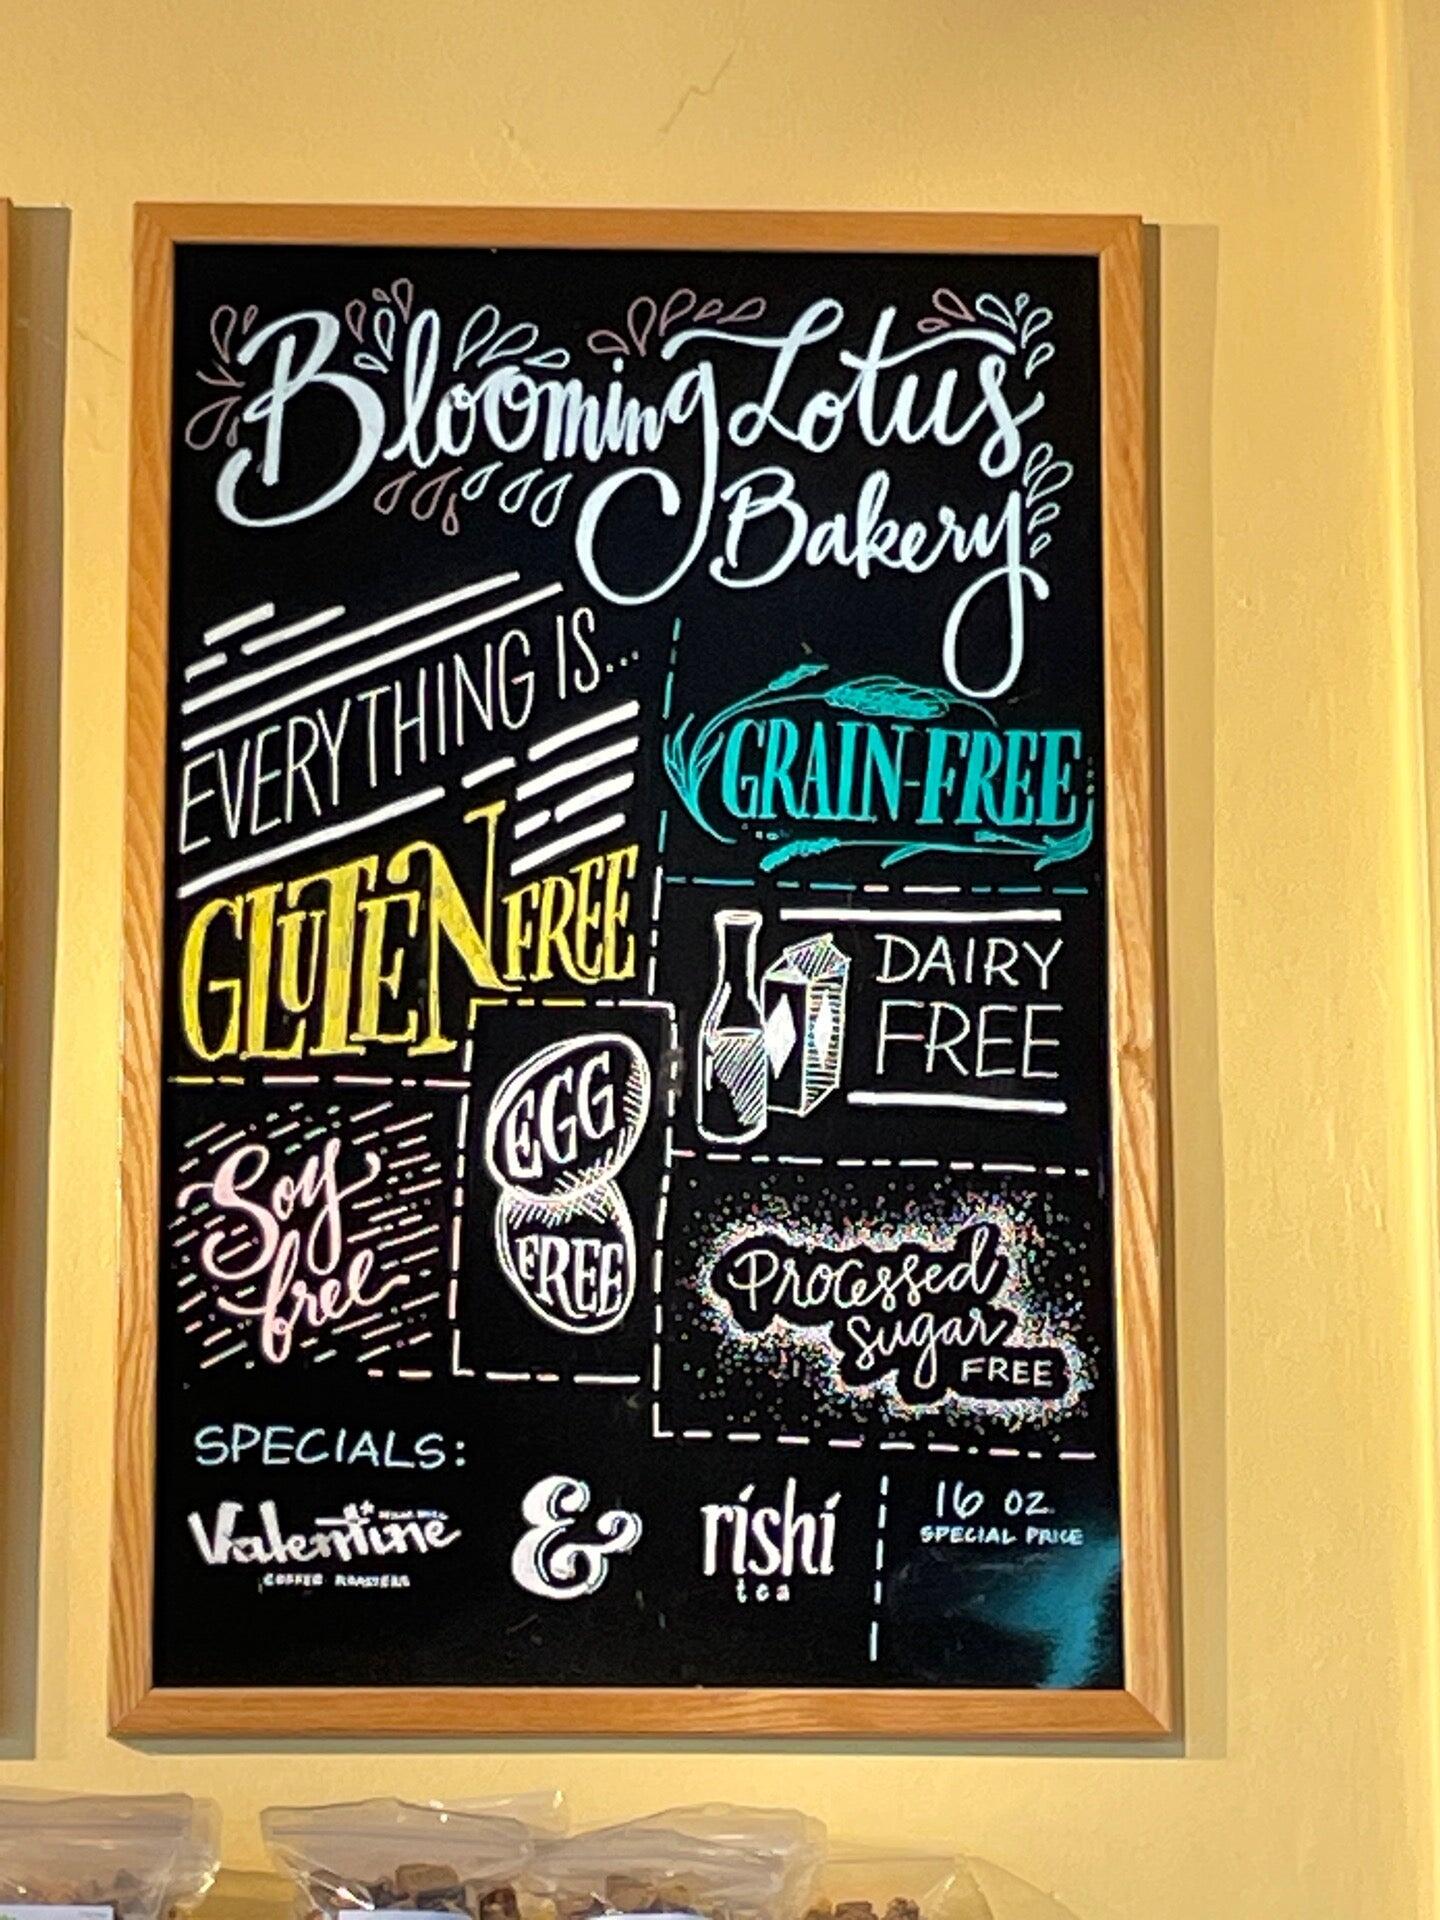 Blooming Lotus
Bakery
EVERYTHING IS...
GLUTEN FREE
GRAIN-FREE
DAIRY
FREE
EGG
FREE
Soy
free
Processed
sugar
FREE
SPECIALS:
Valentine
COFFEE ROASTERS
&
rishi
tea
16 OZ.
SPECIAL PRICE